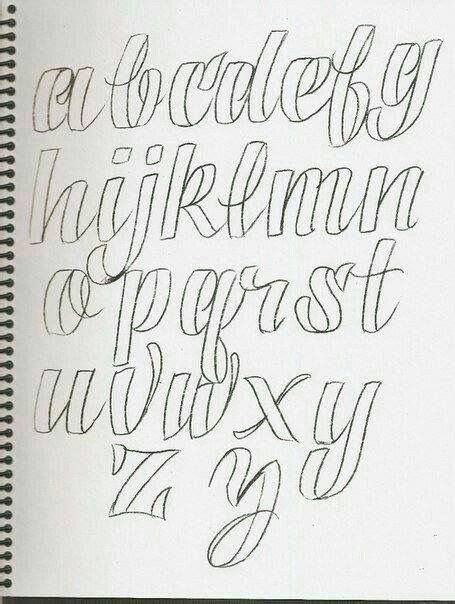 abcdefg
hijklmn
opqrst
uvwxy
zy